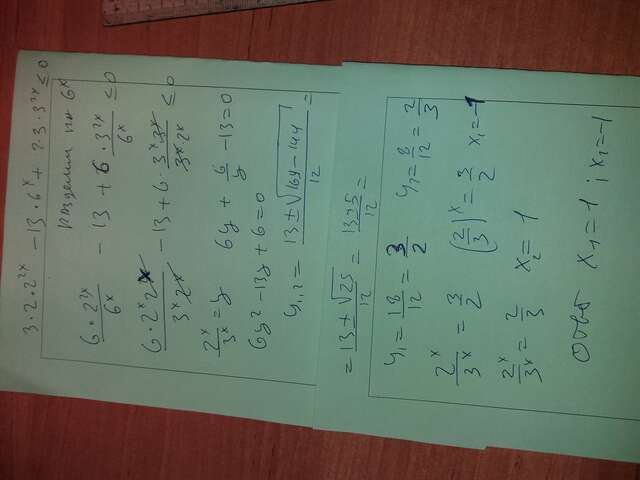 3·2·2^2x − 13·6^x + 2·3·3^2x ≤ 0
разделим на 6^x
6·2^2x/6^x − 13 + 6·3^2x/6^x ≤ 0
6·2^x 2^x/3^x 2^x − 13 + 6·3^x 3^x/3^x 2^x ≤ 0
2^x/3^x = y 6y + 6/y − 13 = 0
6y² − 13y + 6 = 0
y1,2 = 13 ± √169 − 144/12 =
= 13 ± √25/12 = 13 ± 5/12 =
y1 = 18/12 = 3/2 y2 = 8/12 = 2/3
2^x/3^x = 3/2 (2/3)^x = 3/2 x1 = −1
2^x/3^x = 2/3 x2 = 1
Ответ x1 = 1 ; x2 = −1